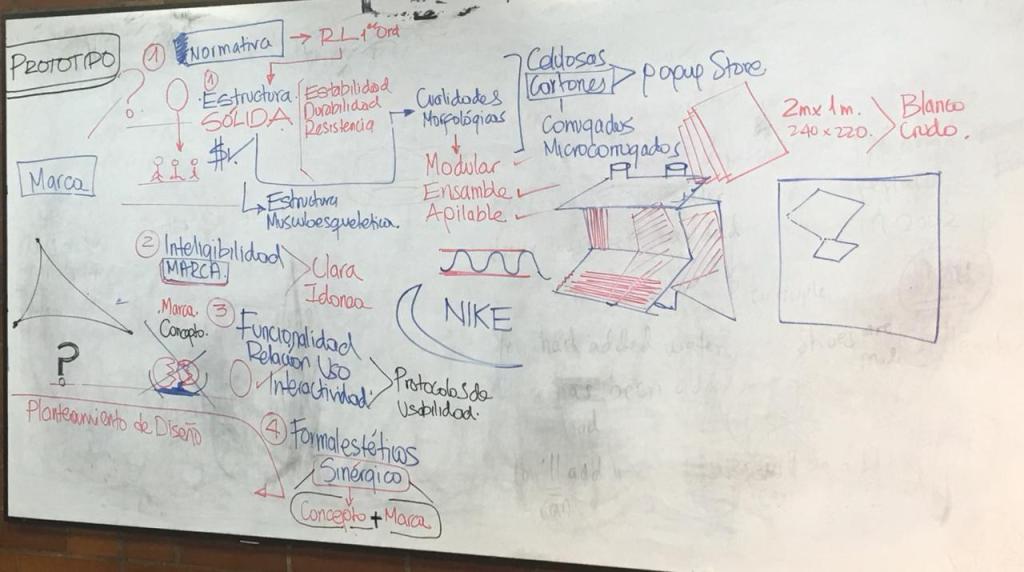 PROTOTIPO
?
① Normativa → R.L. 1er Ord
① Estructura.
SÓLIDA
Estabilidad
Durabilidad
Resistencia
Cualidades
Morfológicas
Celulosas
Cartones
Popup Store
Corrugados
Microcorrugados
2m x 1m.
240 x 220.
Blanco
Crudo.
Modular
Ensamble
Apilable
Marca
Estructura
Musculoesquelética.
② Inteligibilidad
MARCA.
Clara
Idonea
Marca.
Concepto.
③ Funcionalidad
Relación Uso
Interactividad
Protocolos de
Usabilidad.
NIKE
?
Planteamiento de Diseño
④ Formalestéticos
Sinérgico
Concepto + Marca